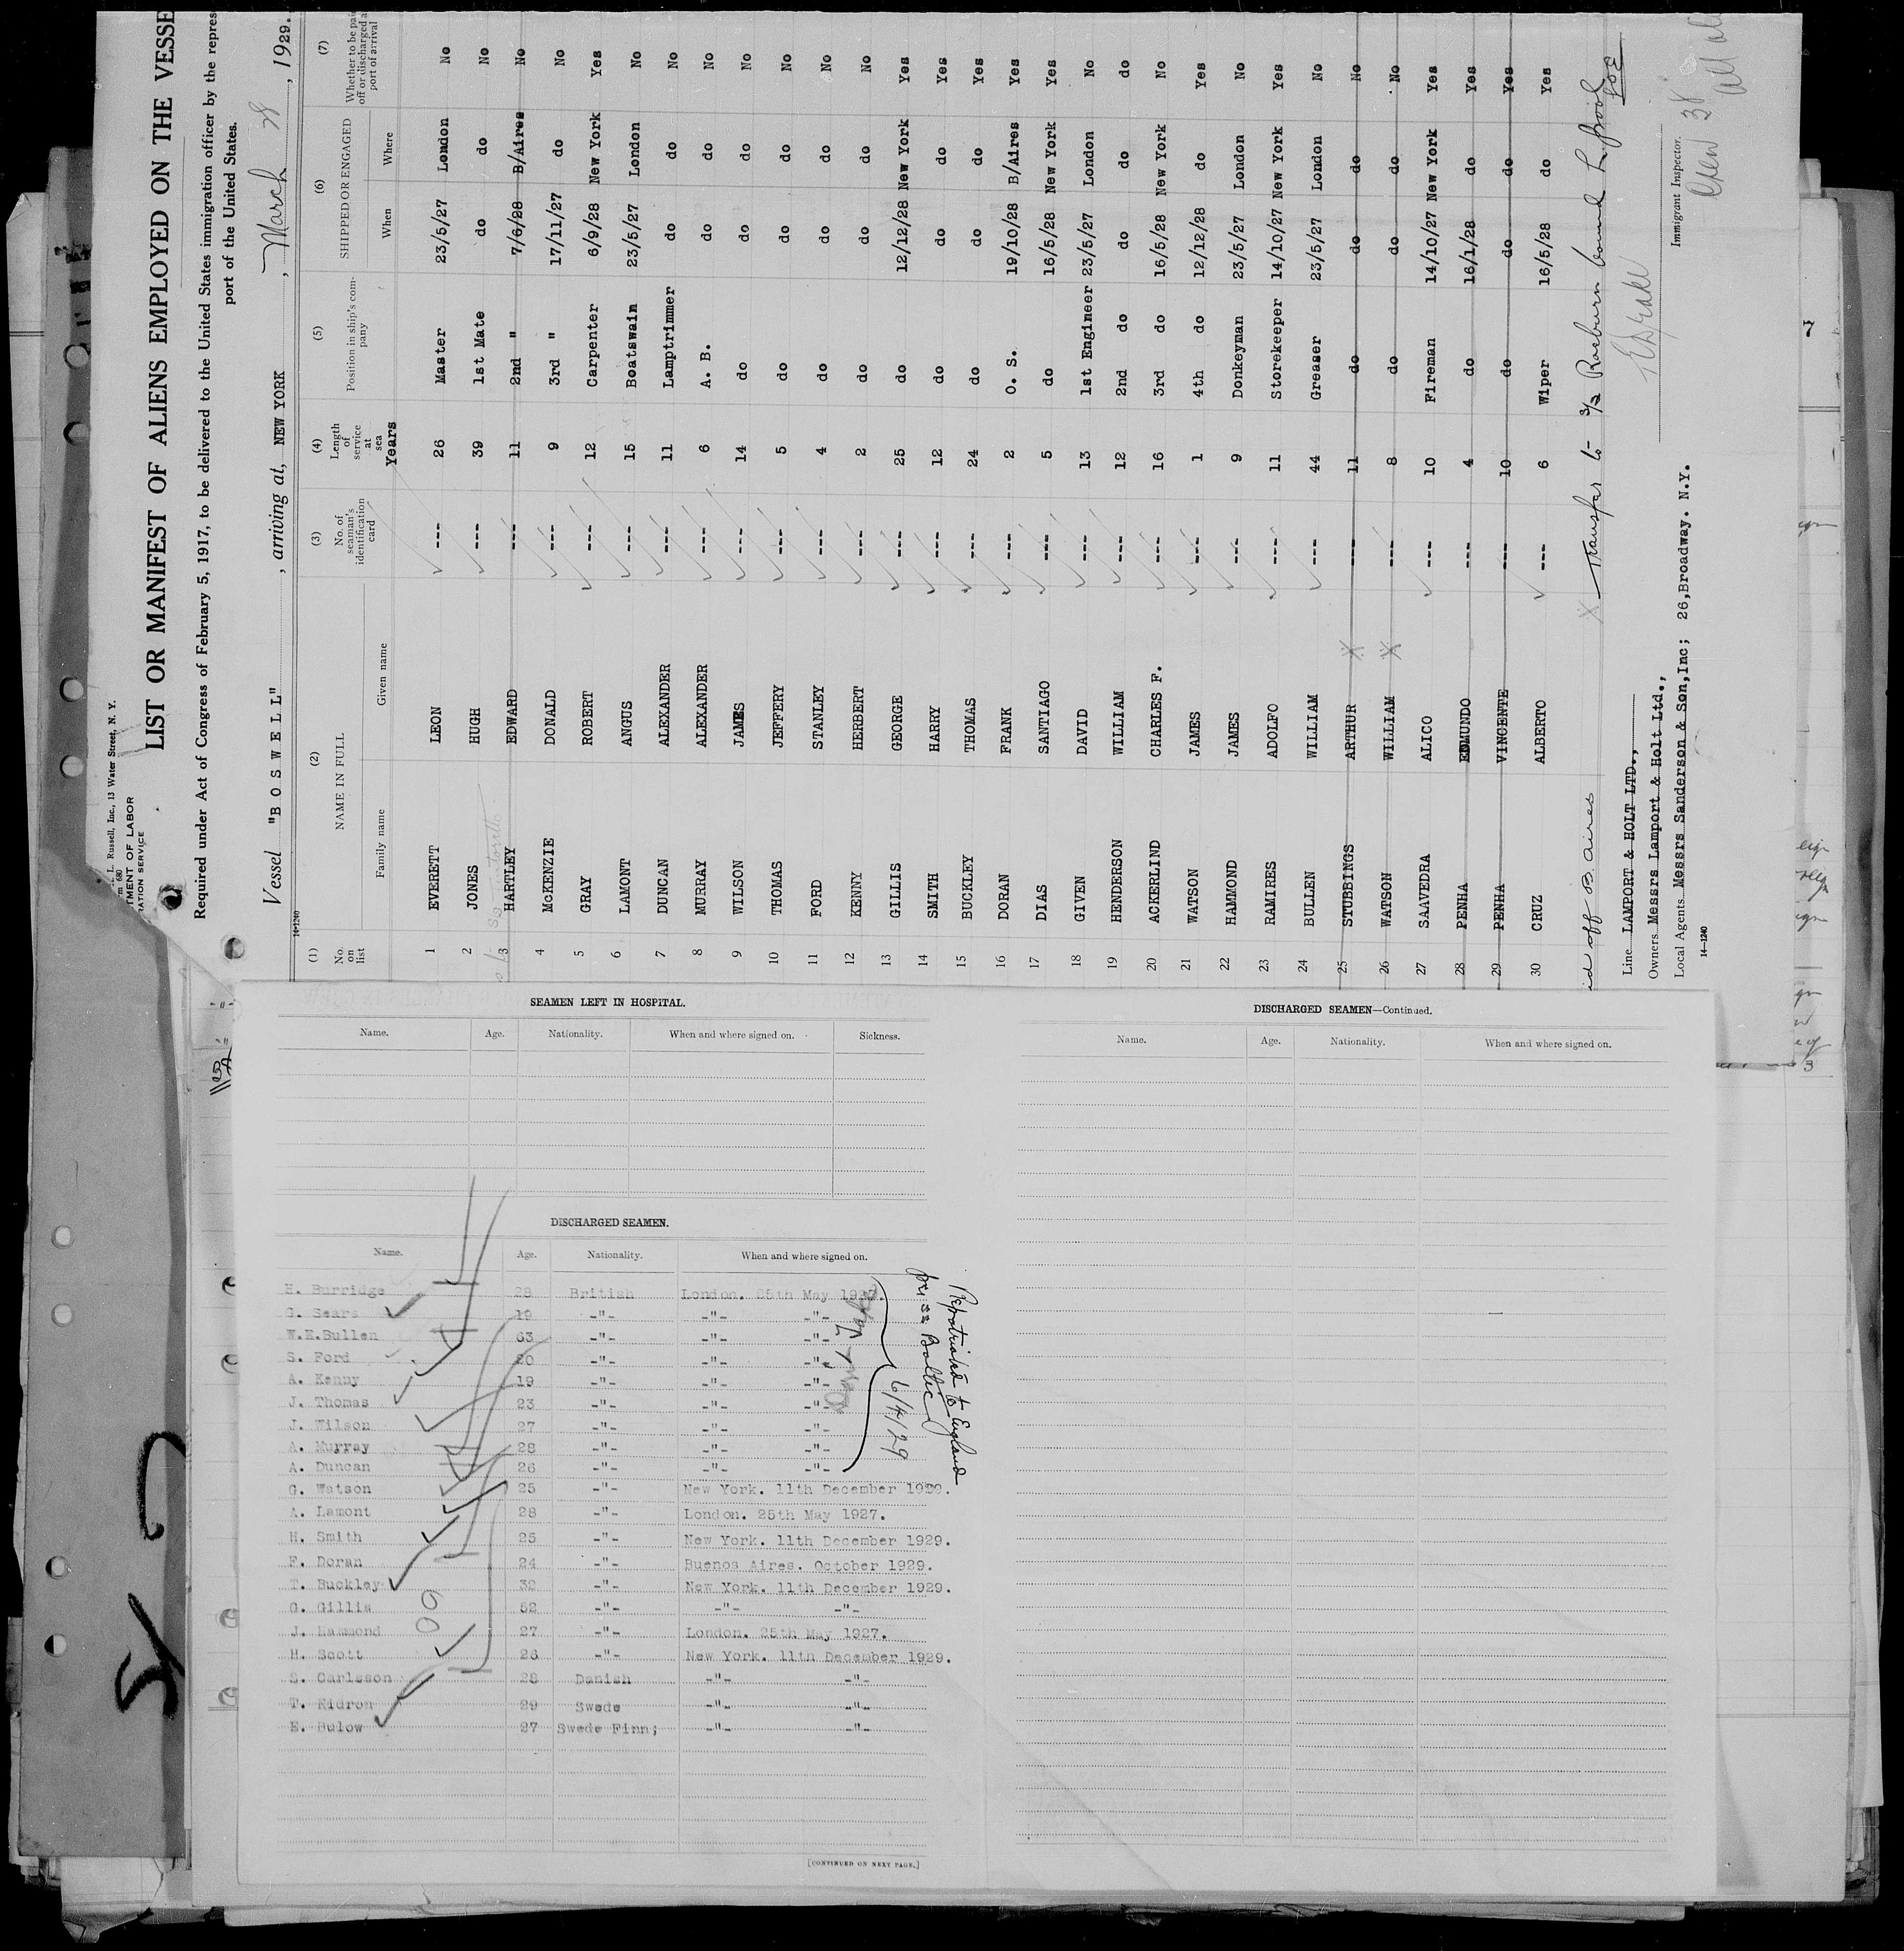 I. L. Russell, Inc., 13 Water Street, N. Y.
rm 680
TMENT OF LABOR
RATION SERVICE
LIST OR MANIFEST OF ALIENS EMPLOYED ON THE VESSE
Required under Act of Congress of February 5, 1917, to be delivered to the United States immigration officer by the repres
port of the United States.
Vessel "B O S W E L L" , arriving at, NEW YORK , March , 1929.
14-1240
(1) (2) (3) (4) (5) (6) (7)
No. on list NAME IN FULL No. of seaman's identification card Length of service at sea Position in ship's company SHIPPED OR ENGAGED Whether to be paid off or discharged a port of arrival
Family name Given name Years When Where
1 EVERETT LEON --- 26 Master 23/5/27 London No
2 JONES HUGH --- 39 1st Mate do do No
3 HARTLEY EDWARD --- 11 2nd " 7/6/28 B/Aires No
4 McKENZIE DONALD --- 9 3rd " 17/11/27 do No
5 GRAY ROBERT --- 12 Carpenter 6/9/28 New York Yes
6 LAMONT ANGUS --- 15 Boatswain 23/5/27 London No
7 DUNCAN ALEXANDER --- 11 Lamptrimmer do do No
8 MURRAY ALEXANDER --- 6 A. B. do do No
9 WILSON JAMES --- 14 do do do No
10 THOMAS JEFFERY --- 5 do do do No
11 FORD STANLEY --- 4 do do do No
12 KENNY HERBERT --- 2 do do do No
13 GILLIS GEORGE --- 25 do 12/12/28 New York Yes
14 SMITH HARRY --- 12 do do do Yes
15 BUCKLEY THOMAS --- 24 do do do Yes
16 DORAN FRANK --- 2 O. S. 19/10/28 B/Aires Yes
17 DIAS SANTIAGO --- 5 do 16/5/28 New York Yes
18 GIVEN DAVID --- 13 1st Engineer 23/5/27 London No
19 HENDERSON WILLIAM --- 12 2nd do do do do
20 ACKERLIND CHARLES F. --- 16 3rd do 16/5/28 New York No
21 WATSON JAMES --- 1 4th do 12/12/28 do Yes
22 HAMMOND JAMES --- 9 Donkeyman 23/5/27 London No
23 RAMIRES ADOLFO --- 11 Storekeeper 14/10/27 New York Yes
24 BULLEN WILLIAM --- 44 Greaser 23/5/27 London No
25 STUBBINGS ARTHUR X --- 11 do do do No
26 WATSON WILLIAM X --- 8 do do do No
27 SAAVEDRA ALICO --- 10 Fireman 14/10/27 New York Yes
28 PENHA EDMUNDO --- 4 do 16/1/28 do Yes
29 PENHA VINCENTE --- 10 do do do Yes
30 CRUZ ALBERTO --- 6 Wiper 16/5/28 do Yes
id off B. Aires X Transfer to S/S Raeburn bound L'pool
Line LAMPORT & HOLT LTD.,
Owners Messrs Lamport & Holt Ltd.,
Local Agents Messrs Sanderson & Son,Inc; 26,Broadway. N.Y.
Immigrant Inspector.
Crew 38
14-1240
SEAMEN LEFT IN HOSPITAL.
Name. Age. Nationality. When and where signed on. Sickness.
DISCHARGED SEAMEN.
Name. Age. Nationality. When and where signed on.
H. Burridge 28 British London. 25th May 1927.
G. Sears 19 -"- -"- -"-
W.E.Bullen 63 -"- -"- -"-
S. Ford 20 -"- -"- -"-
A. Kenny 19 -"- -"- -"-
J. Thomas 23 -"- -"- -"-
J. Wilson 27 -"- -"- -"-
A. Murray 28 -"- -"- -"-
A. Duncan 26 -"- -"- -"-
G. Watson 25 -"- New York. 11th December 1929.
A. Lamont 28 -"- London. 25th May 1927.
H. Smith 25 -"- New York. 11th December 1929.
F. Doran 24 -"- Buenos Aires. October 1929.
T. Buckley 32 -"- New York. 11th December 1929.
G. Gillis 52 -"- -"- -"-
J. Hammond 27 -"- London. 25th May 1927.
H. Scott 26 -"- New York. 11th December 1929.
S. Carlsson 28 Danish -"- -"-
T. Kidron 29 Swede -"- -"-
E. Bulow 27 Swede Finn; -"- -"-
Repatriated to England
per ss Baltic
6/4/29
[CONTINUED ON NEXT PAGE.]
DISCHARGED SEAMEN—Continued.
Name. Age. Nationality. When and where signed on.